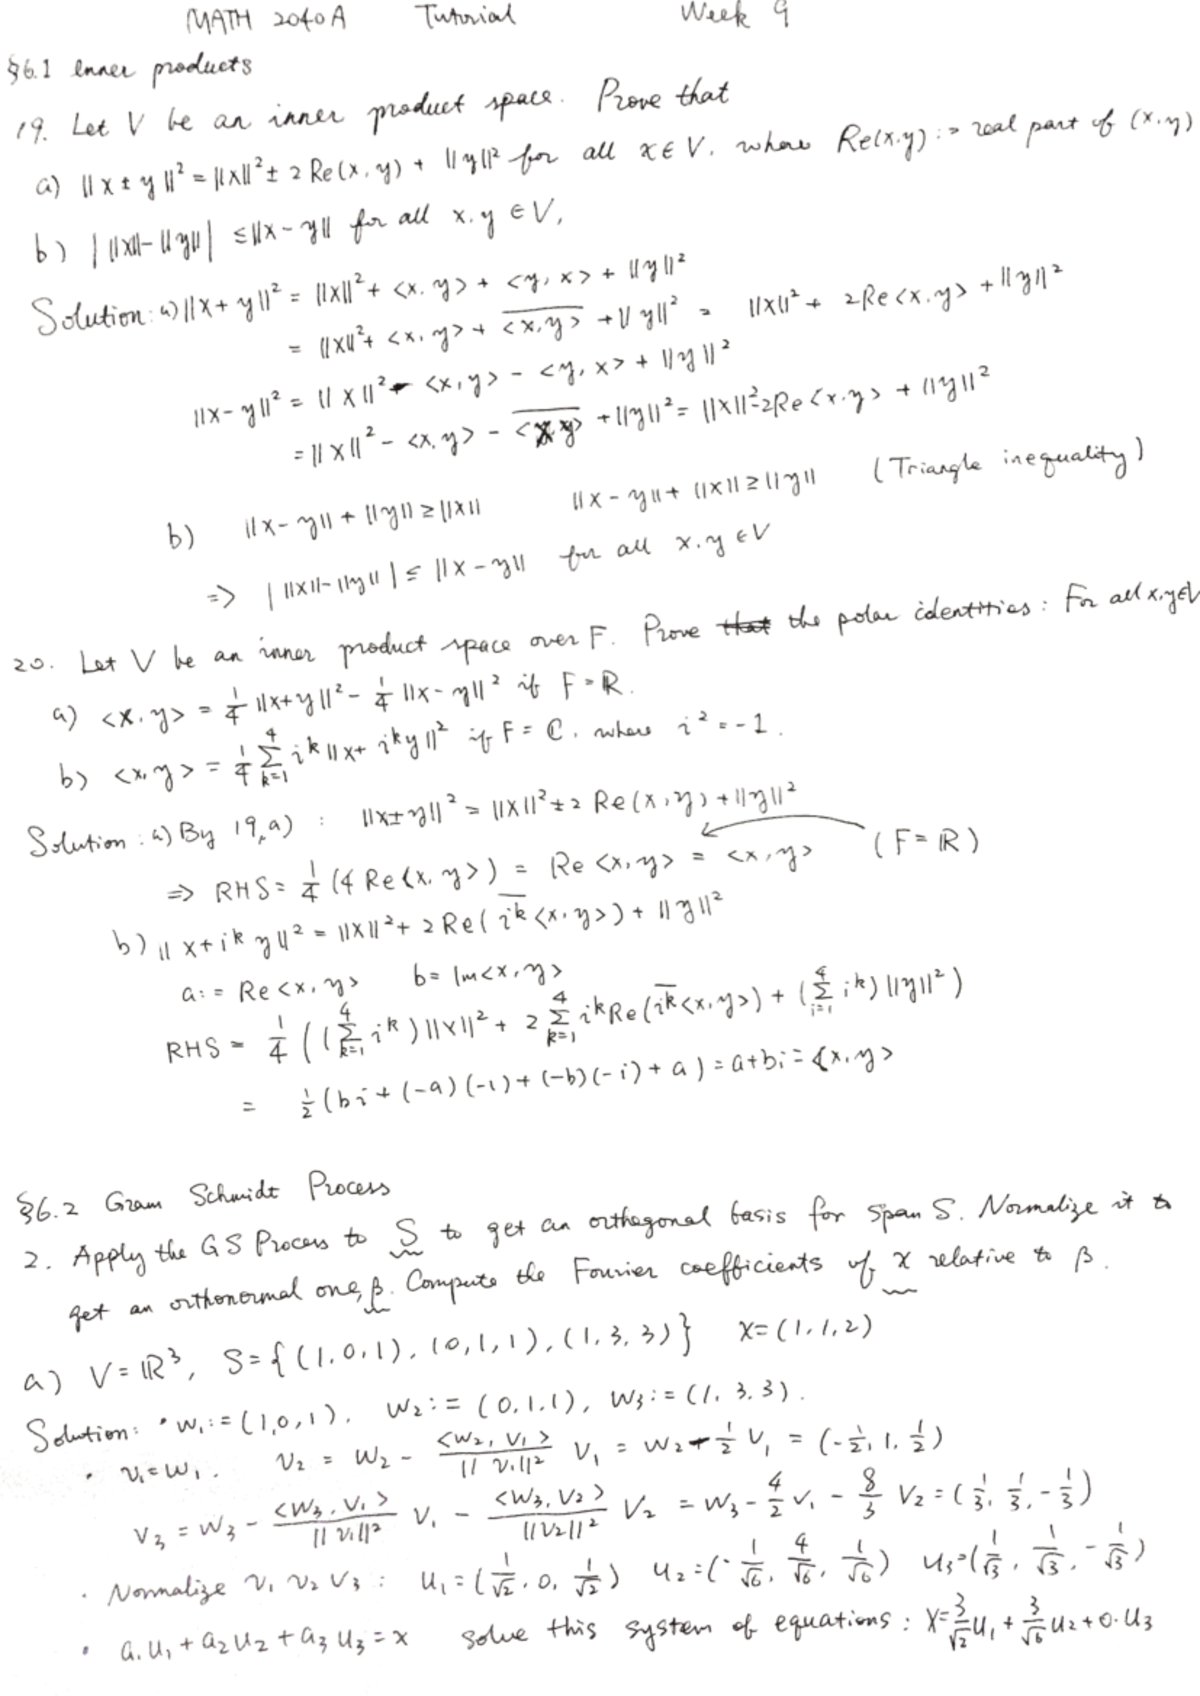 MATH 2040A Tutorial Week 9
§6.1 Inner products
19. Let V be an inner product space. Prove that
a) ||x ± y||² = ||x||² ± 2 Re(x, y) + ||y||² for all x ∈ V, where Re(x.y) := real part of (x.y)
b) | ||x|| - ||y|| | ≤ ||x - y|| for all x. y ∈ V,
Solution: a) ||x + y||² = ||x||² + <x. y> + <y, x> + ||y||²
= ||x||² + <x, y> + \overline{<x,y>} + ||y||² = ||x||² + 2Re<x.y> + ||y||²
||x - y||² = ||x||² - <x,y> - <y, x> + ||y||²
= ||x||² - <x, y> - \overline{<x.y>} + ||y||² = ||x||² - 2Re<x.y> + ||y||²
b) ||x - y|| + ||y|| ≥ ||x|| ||x - y|| + ||x|| ≥ ||y|| (Triangle inequality)
=> | ||x|| - ||y|| | ≤ ||x - y|| for all x.y ∈ V
20. Let V be an inner product space over F. Prove the polar identities: For all x,y∈V
a) <x.y> = 1/4 ||x+y||² - 1/4 ||x - y||² if F = ℝ.
b) <x,y> = 1/4 Σ_{k=1}^{4} i^k ||x + i^k y||² if F = ℂ, where i² = -1.
Solution: a) By 19,a) : ||x±y||² = ||x||² ± 2 Re(x,y) + ||y||²
=> RHS = 1/4 (4 Re<x, y>) = Re <x, y> = <x, y> (F = ℝ)
b) ||x + i^k y||² = ||x||² + 2 Re( \overline{i^k} <x.y>) + ||y||²
a: = Re<x, y> b = Im<x, y>
RHS = 1/4 ( (Σ_{k=1}^{4} i^k) ||x||² + 2 Σ_{k=1}^{4} i^k Re(\overline{i^k}<x.y>) + (Σ_{i=1}^{4} i^k) ||y||² )
= 1/2 (bi + (-a)(-1) + (-b)(-i) + a) = a+bi = <x,y>
§6.2 Gram Schmidt Process
2. Apply the GS Process to S to get an orthogonal basis for span S. Normalize it to
get an orthonormal one, β. Compute the Fourier coefficients of x relative to β.
a) V = ℝ³, S = { (1.0.1), (0,1,1), (1,3,3)} x = (1.1.2)
Solution: • w₁ := (1,0,1), w₂ := (0.1.1), w₃ := (1, 3.3).
• v₁ = w₁. v₂ = w₂ - <w₂, v₁>/||v₁||² v₁ = w₂ - 1/2 v₁ = (-1/2, 1, 1/2)
v₃ = w₃ - <w₃, v₁>/||v₁||² v₁ - <w₃, v₂>/||v₂||² v₂ = w₃ - 4/2 v₁ - 8/3 v₂ = (1/3, 1/3, -1/3)
• Normalize v₁ v₂ v₃ : u₁ = (1/√2, 0, 1/√2) u₂ = (-1/√6, 4/√6, 1/√6) u₃ = (1/√3, 1/√3, -1/√3)
• a₁u₁ + a₂u₂ + a₃u₃ = x solve this system of equations : x = 3/√2 u₁ + 3/√6 u₂ + 0·u₃